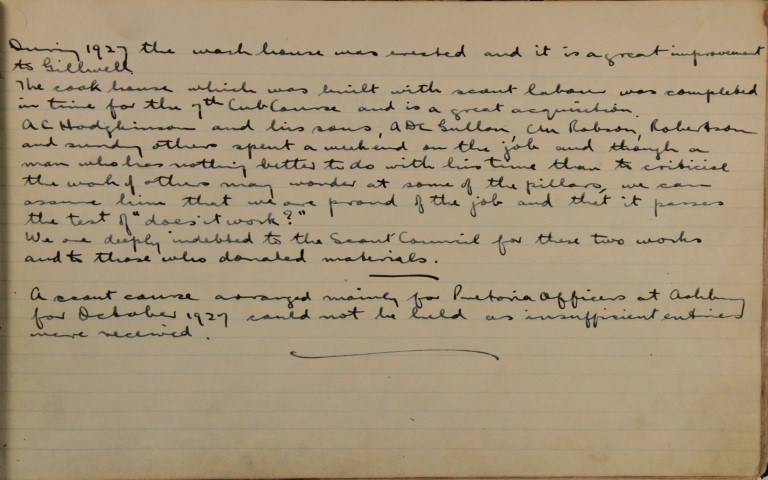 During 1927 the wash house was erected and it is a great improvement
to Gillwell.
The cook house which was built with scout labour was completed
in time for the 7th Cub Course and is a great acquisition.
AC Hodgkinson and his sons, ADC Gullan, CM Robson, Robertson
and sundry others spent a weekend on the job and though a
man who has nothing better to do with his time than to criticise
the work of others may wonder at some of the pillars, we can
assure him that we are proud of the job and that it passes
the test of "does it work?"
We are deeply indebted to the Scout Council for these two works
and to those who donated materials.
A scout course arranged mainly for Pretoria Officers at Ashbury
for October 1927 could not be held as insufficient entries
were received.